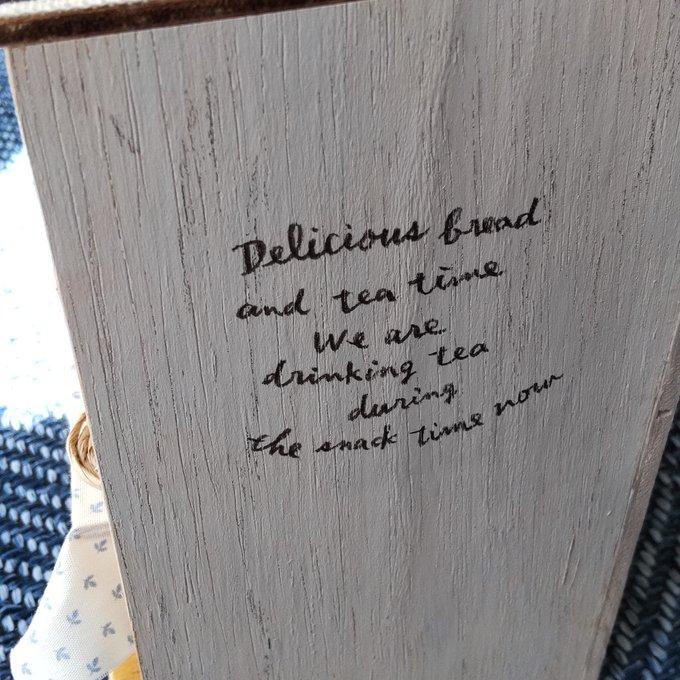 Delicious bread
and tea time
We are
drinking tea
during
the snack time now